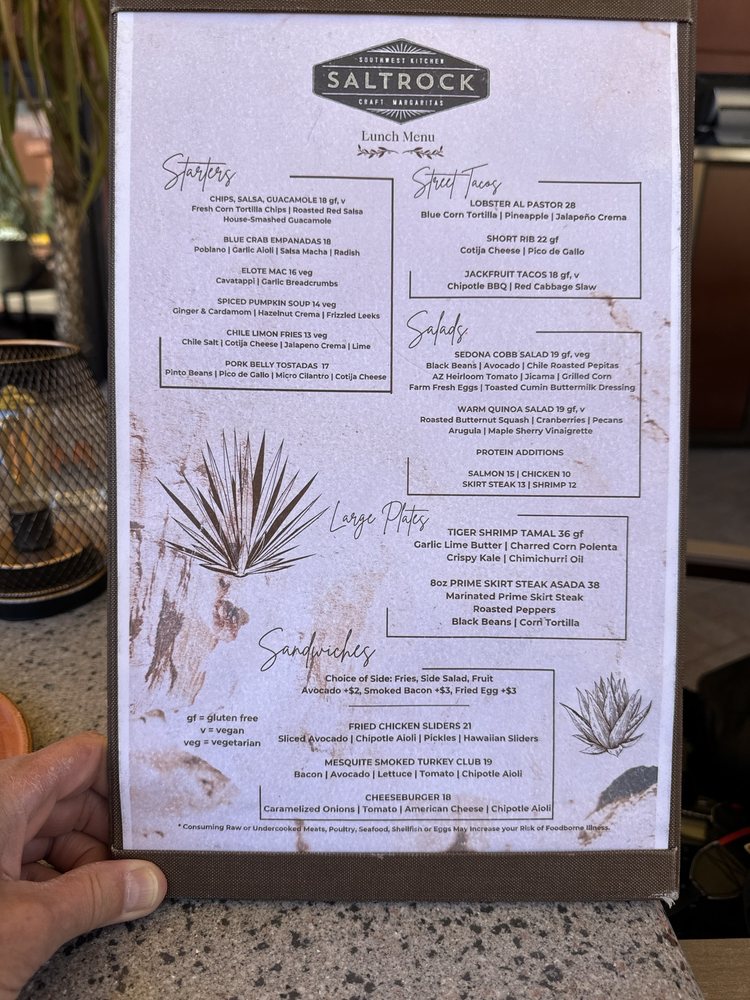 SOUTHWEST KITCHEN
SALTROCK
CRAFT MARGARITAS
Lunch Menu
Starters
CHIPS, SALSA, GUACAMOLE 18 gf, v
Fresh Corn Tortilla Chips | Roasted Red Salsa
House-Smashed Guacamole
BLUE CRAB EMPANADAS 18
Poblano | Garlic Aioli | Salsa Macha | Radish
ELOTE MAC 16 veg
Cavatappi | Garlic Breadcrumbs
SPICED PUMPKIN SOUP 14 veg
Ginger & Cardamom | Hazelnut Crema | Frizzled Leeks
CHILE LIMON FRIES 13 veg
Chile Salt | Cotija Cheese | Jalapeno Crema | Lime
PORK BELLY TOSTADAS 17
Pinto Beans | Pico de Gallo | Micro Cilantro | Cotija Cheese
Street Tacos
LOBSTER AL PASTOR 28
Blue Corn Tortilla | Pineapple | Jalapeño Crema
SHORT RIB 22 gf
Cotija Cheese | Pico de Gallo
JACKFRUIT TACOS 18 gf, v
Chipotle BBQ | Red Cabbage Slaw
Salads
SEDONA COBB SALAD 19 gf, veg
Black Beans | Avocado | Chile Roasted Pepitas
AZ Heirloom Tomato | Jicama | Grilled Corn
Farm Fresh Eggs | Toasted Cumin Buttermilk Dressing
WARM QUINOA SALAD 19 gf, v
Roasted Butternut Squash | Cranberries | Pecans
Arugula | Maple Sherry Vinaigrette
PROTEIN ADDITIONS
SALMON 15 | CHICKEN 10
SKIRT STEAK 13 | SHRIMP 12
Large Plates
TIGER SHRIMP TAMAL 36 gf
Garlic Lime Butter | Charred Corn Polenta
Crispy Kale | Chimichurri Oil
8oz PRIME SKIRT STEAK ASADA 38
Marinated Prime Skirt Steak
Roasted Peppers
Black Beans | Corn Tortilla
Sandwiches
Choice of Side: Fries, Side Salad, Fruit
Avocado +$2, Smoked Bacon +$3, Fried Egg +$3
FRIED CHICKEN SLIDERS 21
Sliced Avocado | Chipotle Aioli | Pickles | Hawaiian Sliders
MESQUITE SMOKED TURKEY CLUB 19
Bacon | Avocado | Lettuce | Tomato | Chipotle Aioli
CHEESEBURGER 18
Caramelized Onions | Tomato | American Cheese | Chipotle Aioli
gf = gluten free
v = vegan
veg = vegetarian
* Consuming Raw or Undercooked Meats, Poultry, Seafood, Shellfish or Eggs May Increase your Risk of Foodborne Illness.